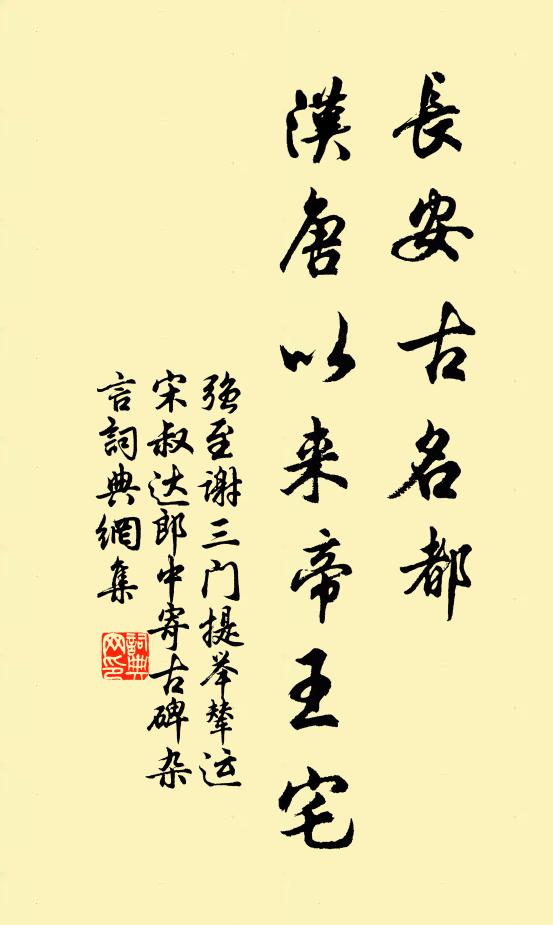 長安古名都
漢唐以来帝王宅
强至谢三门提举辇运
宋叔达郎中寄古碑杂
言詞典網集
詞典
网印